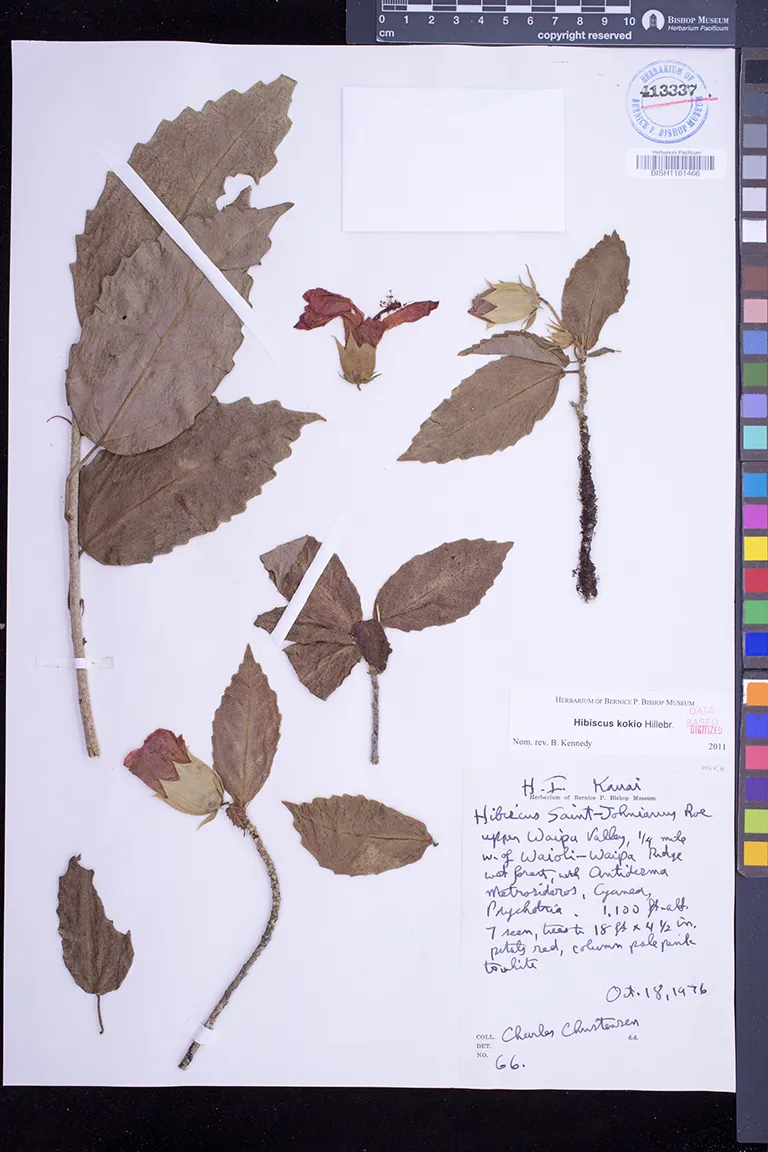 0 1 2 3 4 5 6 7 8 9 10
cm
copyright reserved
BISHOP MUSEUM
Herbarium Pacificum
HERBARIUM OF
413337
BERNICE P. BISHOP MUSEUM
Herbarium Pacificum
BISH1161466
HERBARIUM OF BERNICE P. BISHOP MUSEUM
Hibiscus kokio Hillebr.
DATA
BASED
DIGITIZED
Nom. rev. B. Kennedy
2011
H.I. Kauai
Herbarium of Bernice P. Bishop Museum
Hibiscus Saint-Johnianus Roe
upper Waipa Valley, 1/4 mile
w. of Waioli-Waipa Ridge
wet forest, with Antidesma
Metrosideros, Cyanea,
Psychotria. 1,100 ft. alt.
7 seen, trees to 18 ft x 4 1/2 in.
petals red, column pale pink
to white
Oct. 18, 1976
COLL. Charles Christensen
DET.
NO. 66.